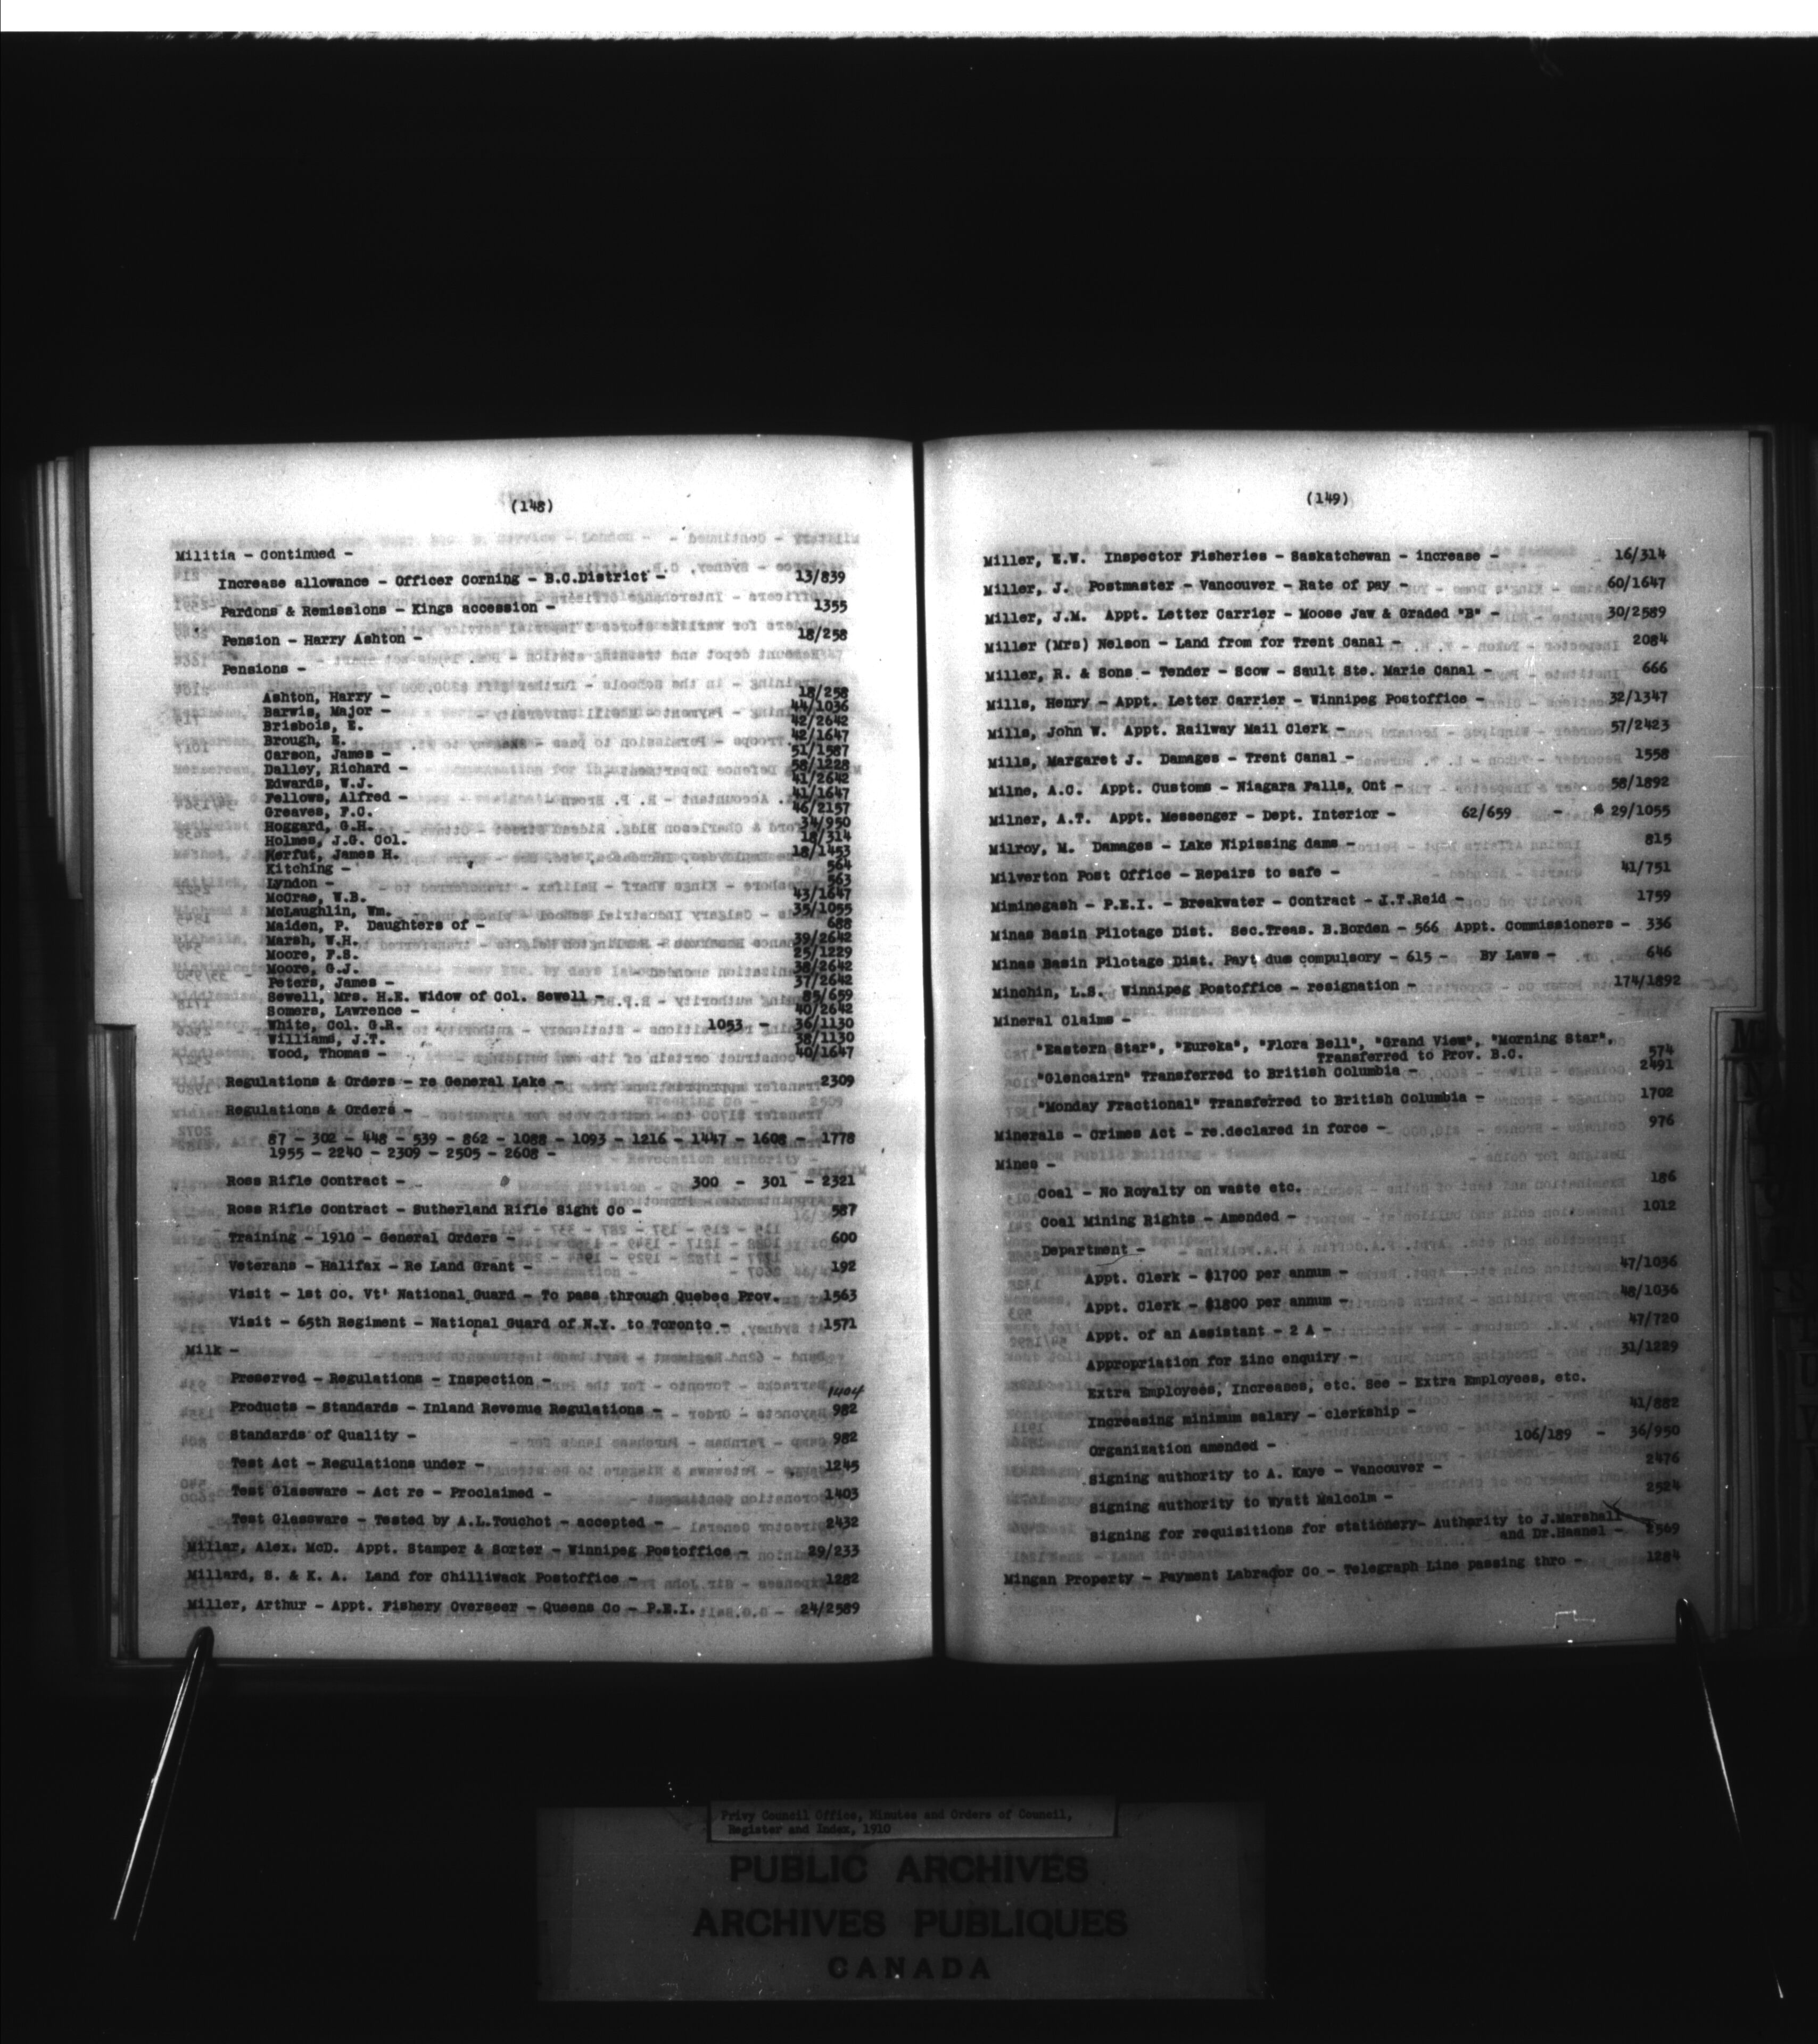 (148)
Militia - Continued -
Increase allowance - Officer Corning - B.C.District - 13/839
Pardons & Remissions - Kings accession - 1355
Pension - Harry Ashton - 18/258
Pensions -
Ashton, Harry - 18/258
Barwis, Major - 44/1036
Brisbois, E. 42/2642
Brough, E. 42/1647
Carson, James - 51/1587
Dalley, Richard - 58/1228
Edwards, W.J. 41/2642
Fellows, Alfred - 41/1647
Greaves, F.C. 46/2157
Hoggard, G.H. 34/950
Holmes, J.G. Col. 18/314
Kerfut, James H. 18/1453
Kitching - 564
Lyndon - 563
McCrae, W.B. 43/1647
McLaughlin, Wm. 35/1055
Maiden, P. Daughters of - 688
Marsh, W.H. 39/2642
Moore, F.S. 25/1229
Moore, G.J. 38/2642
Peters, James - 37/2642
Sewell, Mrs. H.E. Widow of Col. Sewell - 85/659
Somers, Lawrence - 40/2642
White, Col. G.R. 1053 - 36/1130
Williams, J.T. 38/1130
Wood, Thomas - 40/1647
Regulations & Orders - re General Lake - 2309
Regulations & Orders -
87 - 302 - 448 - 539 - 862 - 1088 - 1093 - 1216 - 1447 - 1608 - 1778
1955 - 2240 - 2309 - 2505 - 2608 -
Ross Rifle Contract - 300 - 301 - 2321
Ross Rifle Contract - Sutherland Rifle Sight Co - 587
Training - 1910 - General Orders - 600
Veterans - Halifax - Re Land Grant - 192
Visit - 1st Co. Vt' National Guard - To pass through Quebec Prov. 1563
Visit - 65th Regiment - National Guard of N.Y. to Toronto - 1571
Milk -
Preserved - Regulations - Inspection - 1404
Products - Standards - Inland Revenue Regulations - 982
Standards of Quality - 982
Test Act - Regulations under - 1245
Test Glassware - Act re - Proclaimed - 1403
Test Glassware - Tested by A.L.Touchot - accepted - 2432
Millar, Alex. McD. Appt. Stamper & Sorter - Winnipeg Postoffice - 29/233
Millard, S. & K. A. Land for Chilliwack Postoffice - 1282
Miller, Arthur - Appt. Fishery Overseer - Queens Co - P.E.I. 24/2589
(149)
Miller, E.W. Inspector Fisheries - Saskatchewan - increase - 16/314
Miller, J. Postmaster - Vancouver - Rate of pay - 60/1647
Miller, J.M. Appt. Letter Carrier - Moose Jaw & Graded "B" - 30/2589
Miller (Mrs) Nelson - Land from for Trent Canal - 2084
Miller, R. & Sons - Tender - Scow - Sault Ste. Marie Canal - 666
Mills, Henry - Appt. Letter Carrier - Winnipeg Postoffice - 32/1347
Mills, John W. Appt. Railway Mail Clerk - 57/2423
Mills, Margaret J. Damages - Trent Canal - 1558
Milne, A.C. Appt. Customs - Niagara Falls, Ont - 58/1892
Milner, A.T. Appt. Messenger - Dept. Interior - 62/659 - 29/1055
Milroy, M. Damages - Lake Nipissing dams - 815
Milverton Post Office - Repairs to safe - 41/751
Miminegash - P.E.I. - Breakwater - Contract - J.T.Reid - 1759
Minas Basin Pilotage Dist. Sec.Treas. B.Borden - 566 Appt. Commissioners - 336
Minas Basin Pilotage Dist. Payt due compulsory - 615 - By Laws - 646
Minchin, L.S. Winnipeg Postoffice - resignation - 174/1892
Mineral Claims -
"Eastern Star", "Eureka", "Flora Bell", "Grand View", "Morning Star",
Transferred to Prov. B.C. 574
"Glencairn" Transferred to British Columbia - 2491
"Monday Fractional" Transferred to British Columbia - 1702
Minerals - Crimes Act - re.declared in force - 976
Mines -
Coal - No Royalty on waste etc. 186
Coal Mining Rights - Amended - 1012
Department -
Appt. Clerk - $1700 per annum - 47/1036
Appt. Clerk - $1800 per annum - 48/1036
Appt. of an Assistant - 2 A - 47/720
Appropriation for Zinc enquiry - 31/1229
Extra Employees, Increases, etc. See - Extra Employees, etc.
Increasing minimum salary - clerkship - 41/882
Organization amended - 106/189 - 36/950
Signing authority to A. Kaye - Vancouver - 2476
Signing authority to Wyatt Malcolm - 2524
Signing for requisitions for stationery- Authority to J.Marshall
and Dr.Haanel - 2569
Mingan Property - Payment Labrador Co - Telegraph Line passing thro - 1284
Privy Council Office, Minutes and Orders of Council,
Register and Index, 1910
PUBLIC ARCHIVES
ARCHIVES PUBLIQUES
CANADA